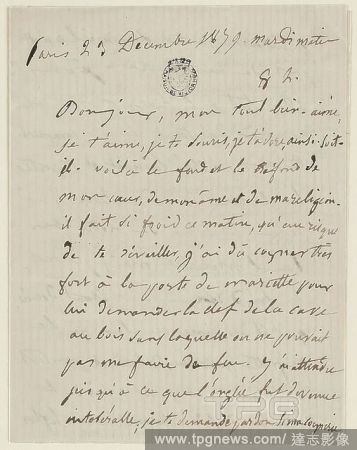 Paris 23 Decembre 1879. mardi matin
8 h.
Bonjour, mon tout bien-aimé,
je t'aime, je te souris, je t'adore, ainsi soit-
il. voilà le fond et le tréfond de
mon cœur, de mon âme et de ma religion.
il fait si froid ce matin, qu'au risque
de te réveiller, j'ai dû cogner très
fort à la porte de mariette pour
lui demander la clef de la cave
au bois sans laquelle on ne pouvait
pas me faire de feu. J'ai attendu
jusqu'à ce que l'onglée fut devenue
intolérable, je te demande pardon si ma cognerie
TPG
www.tpgnews.com / 達志影像